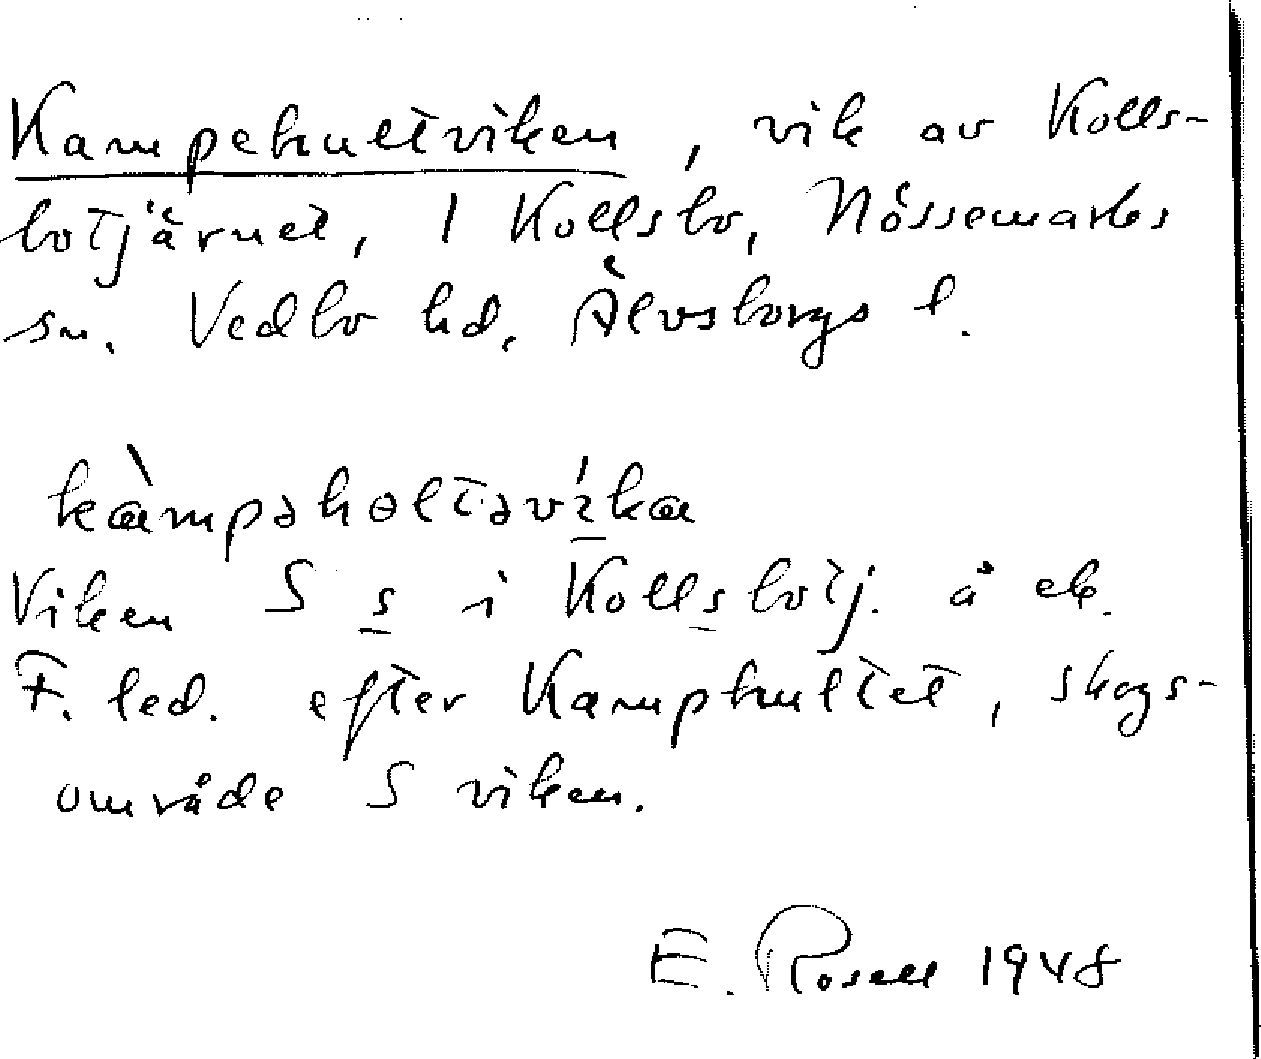 Kampehultviken, vik av Kolls-
botjärnet, 1 Kollsbo, Nössemarks
sn. Vedbo hd, Älvsborgs l.
kàmpəholtəví̱ka
Viken S s̱ i Kolls̱botj. å ek.
F. led. efter Kamphultet, skogs-
område S viken.
E. Rosell 1948